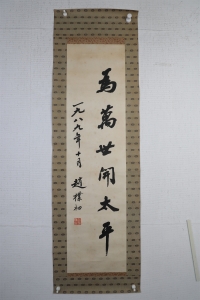 為萬世開太平
一九八九年十月
趙樸初